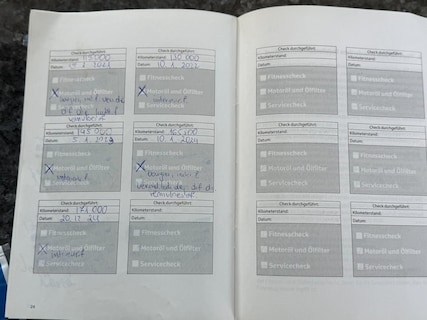 Check durchgeführt:
Kilometerstand:
Datum: 1 2021
Fitnesscheck
Motoröl und Ölfilter
Servicecheck
Check durchgeführt:
Kilometerstand: 130 000
Datum: 10. 1. 2022
Fitnesscheck
Motoröl und Ölfilter
Servicecheck
Check durchgeführt:
Kilometerstand:
Datum: 5. 1.
Fitnesscheck
Motoröl und Ölfilter
Servicecheck
Check durchgeführt:
Kilometerstand:
Datum: 10. 1. 2024
Fitnesscheck
Motoröl und Ölfilter
Servicecheck
Check durchgeführt:
Kilometerstand: 171 000
Datum: 20. 12. 24
Fitnesscheck
Motoröl und Ölfilter
Servicecheck
Check durchgeführt:
Kilometerstand:
Datum:
Fitnesscheck
Motoröl und Ölfilter
Servicecheck
Check durchgeführt:
Kilometerstand:
Datum:
Fitnesscheck
Motoröl und Ölfilter
Servicecheck
Check durchgeführt:
Kilometerstand:
Datum:
Fitnesscheck
Motoröl und Ölfilter
Servicecheck
Check durchgeführt:
Kilometerstand:
Datum:
Fitnesscheck
Motoröl und Ölfilter
Servicecheck
Check durchgeführt:
Kilometerstand:
Datum:
Fitnesscheck
Motoröl und Ölfilter
Servicecheck
Check durchgeführt:
Kilometerstand:
Datum:
Fitnesscheck
Motoröl und Ölfilter
Servicecheck
Check durchgeführt:
Kilometerstand:
Datum:
Fitnesscheck
Motoröl und Ölfilter
Servicecheck